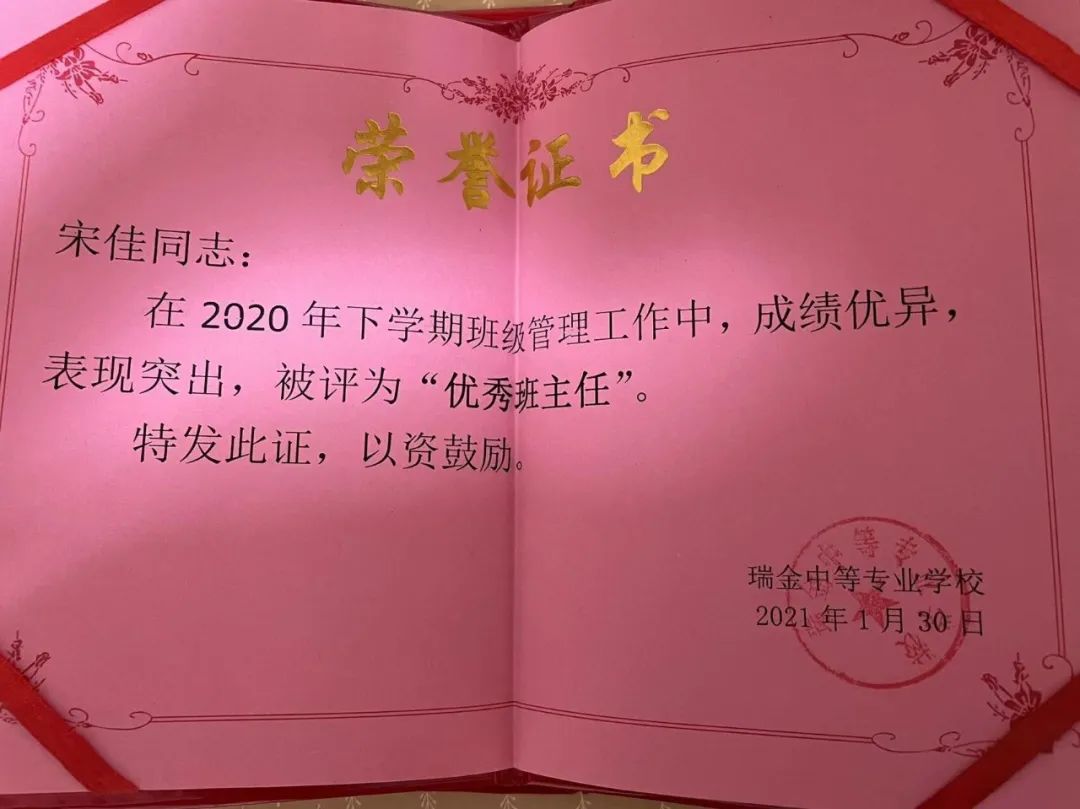 荣誉证书
宋佳同志：
在 2020 年下学期班级管理工作中，成绩优异，
表现突出，被评为“优秀班主任”。
特发此证，以资鼓励。
瑞金中等专业学校
2021 年 1 月 30 日